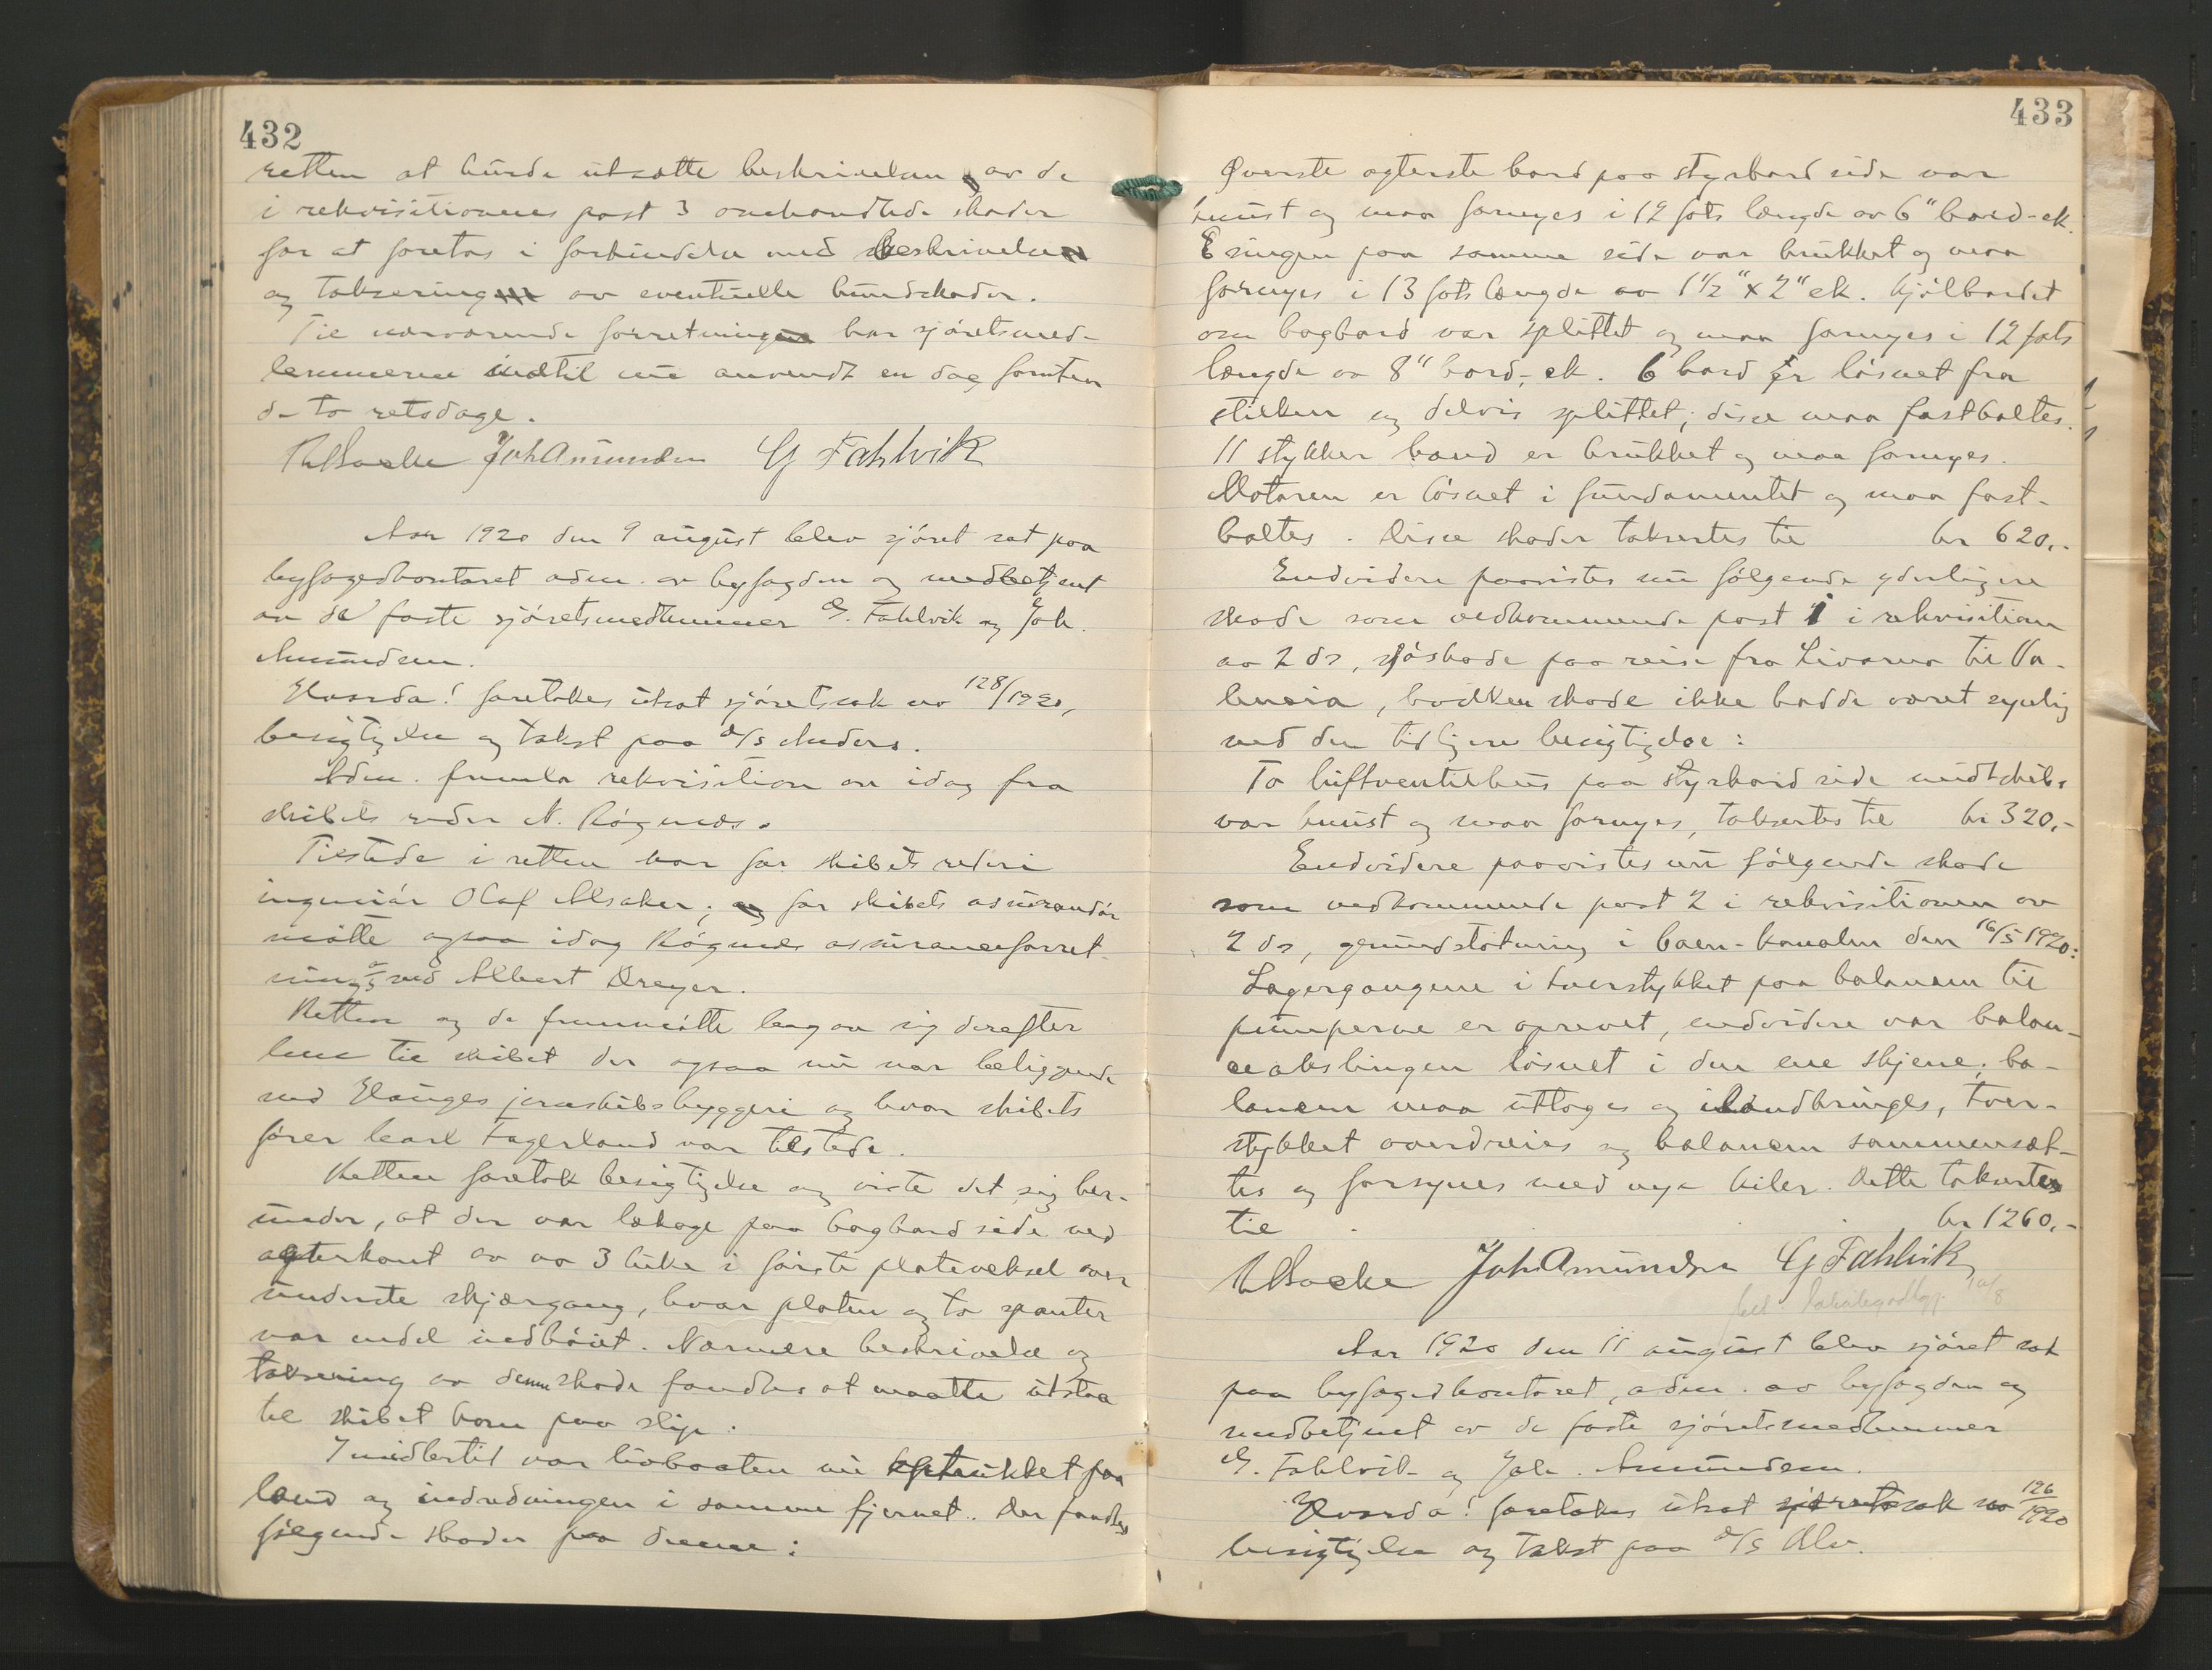 432
retten at burde utsætte beskrivelsen av de
i rekvisitionenes post 3 omhandlede skader
for at foretas i forbindelse med beskrivelsen
og taksering av eventuelle bundskader.
Til nærværende forretning har sjøretsmed-
lemmerne indtil nu anvendt en dag foruten
de to retsdage.
Joh Amundsen G Fahlvik
Aar 1920 den 9 august blev sjøret sat paa
byfogedkontoret adm. av byfogden og medbetjent
av de faste sjøretsmedlemmer G. Fahlvik og Joh.
Amundsen.
Hvorda! foretokes utsat sjøretssak no 128/1920,
besigtigelse og takst paa d/s Anders.
Adm. fremla rekvisition av idag fra
skibets reder N. Røgenæs.
Tilstede i retten var for skibets rederi
ingeniør Olaf Alsaker; for skibets assurandør
møtte ogsaa idag Røgenæs assuranseforret-
ning a/s ved Albert Dreyer.
Retten og de fremmøtte begav sig derefter
hen til skibet der ogsaa nu var beliggende
ved Hauges jernskibsbyggeri og hvor skibets
fører Carl Fagerland var tilstede.
Retten foretok besigtigelse og viste det sig her-
under, at der var lækage paa bagbord side ved
agterkant av no 3 luke i første platveksel over
underste skjærgang, hvor platen og to spanter
var endel indbøiet. Nærmere beskrivelse og
taksering av denne skade fandtes at maatte utstaa
til skibet kom paa slip.
Imidlertid var livbaaten nu optrukket paa
land og indredningen i samme fjernet. Der fandtes
følgende skader paa denne:
433
Øverste agterste bord paa styrbord side var
knust og maa fornyes i 12 fots længde av 6" bord-ek.
Esingen paa samme side var brukket og maa
fornyes i 13 fots længde av 1 1/2" x 2" ek. Kjølbordet
om bagbord var splittet og maa fornyes i 12 fots
længde av 8" bord,-ek. 6 bord er løsnet fra
stilken og delvis splittet; disse maa fastboltes.
11 stykker baand er brukket og maa fornyes.
Motoren er løsnet i fundamentet og maa fast-
boltes. Disse skader takseres til kr 620,-
Endvidere paavistes nu følgende yderligere
skade som vedkommende post 1 i rekvisition
av 2 ds, sjøskade paa reise fra Livorno til Va-
lencia, hvilken skade ikke hadde været synlig
ved den tidligere besigtigelse:
To luftventilhus paa styrbord side midtskibs
var knust og maa fornyes, takseres til kr 320,-
Endvidere paavistes nu følgende skade
som vedkommende post 2 i rekvisitionen av
2 ds, grundstøtning i Caen-kanalen den 16/5 1920:
Lagergangene i tverstykket paa balansen til
pumperne er oprevet, endvidere var balan-
ceakslingen løsnet i den ene skjene; ba-
lansen maa uttages og ilandbringes, tver-
stykket avdreies og balansen sammensæt-
tes og forsynes med nye kiler. Dette takseres
til kr 1260,-
Joh Amundsen G Fahlvik
10/8
Aar 1920 den 11 august blev sjøret sat
paa byfogedkontoret, adm. av byfogden og
medbetjent av de faste sjøretsmedlemmer
G. Fahlvik og Joh. Amundsen.
Hvorda! foretokes utsat sjøretssak no 126/1920
besigtigelse og takst paa d/s Alv.